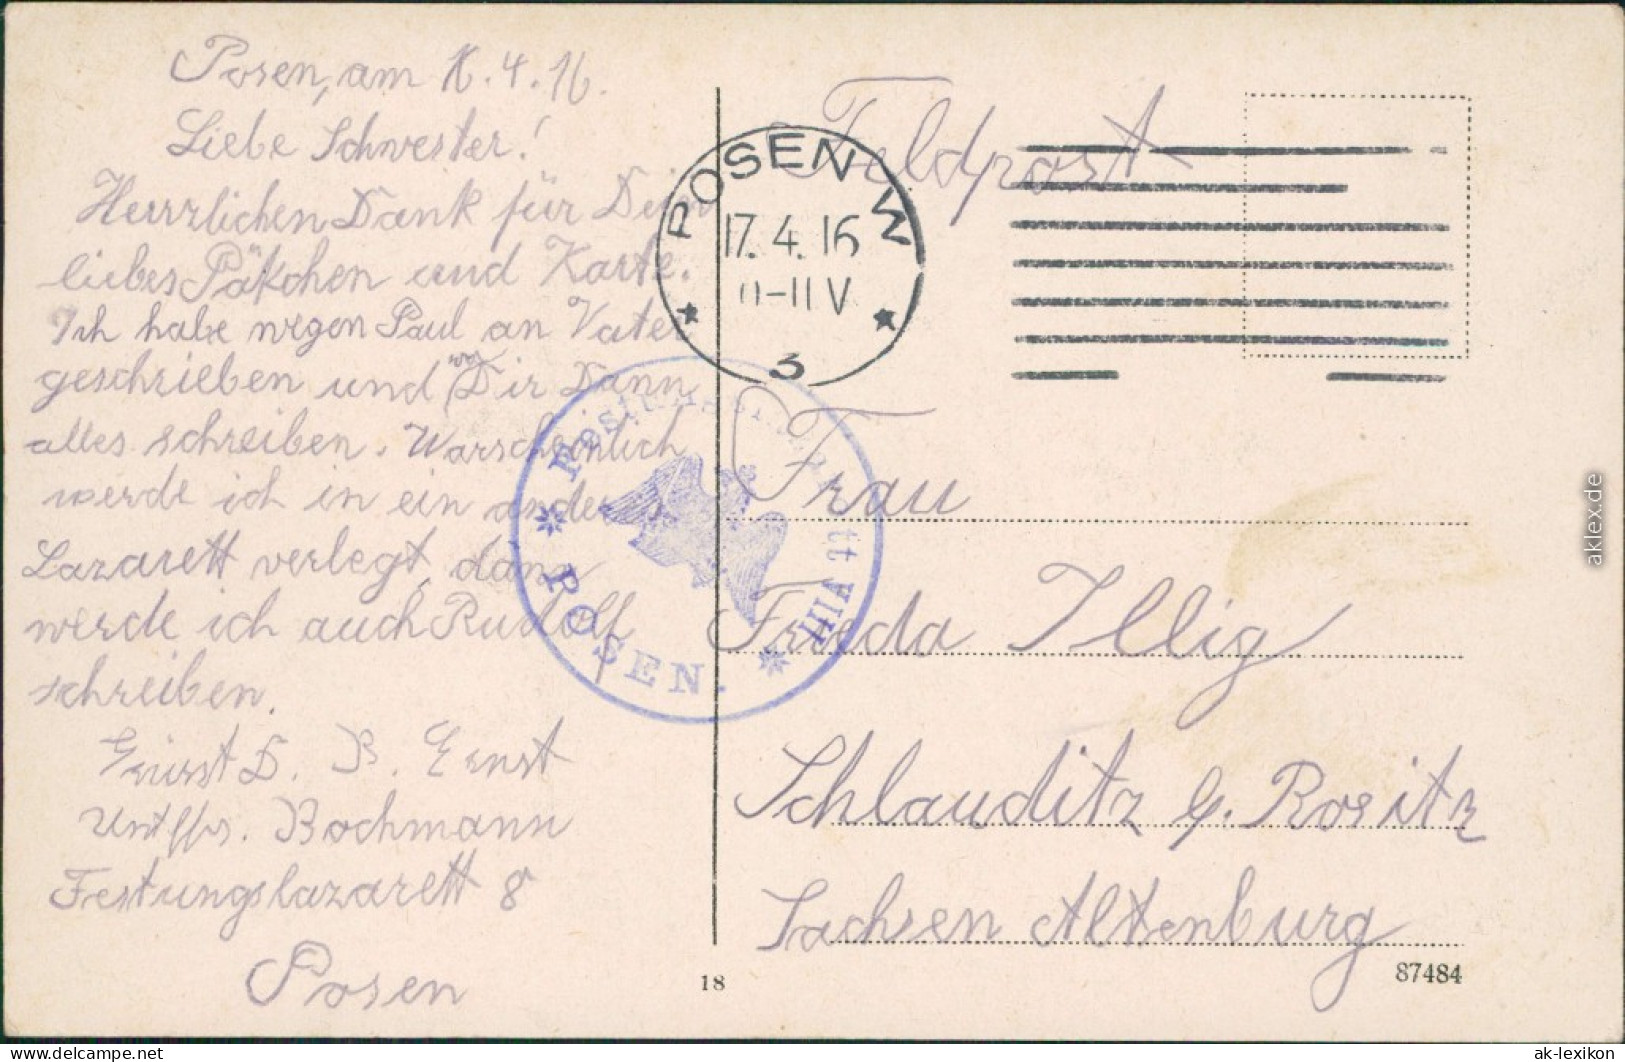 Posen, am 16.4.16.
Liebe Schwester!
Herrzlichen Dank für Dein
liebes Päkchen und Karte.
Ich habe wegen Paul an Vater
geschrieben und Dir Dann
alles schreiben. Warscheinlich
werde ich in ein anderes
Lazarett verlegt, dann
werde ich auch Rudolf
schreiben.
D. B. Ernst
Untffs. Bochmann
Festungslazarett 8
Posen
Feldpost
POSEN W
17.4.16
-11 V
* 3 *
POSEN.
tt VIII
Frau
Frieda Illig
Schlauditz b. Rositz
Sachsen Altenburg
18
87484
aklex.de
© ak-ansichtskarten.de
ak-lexikon